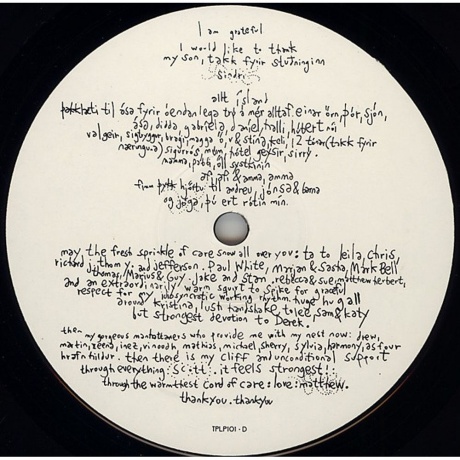 I am grateful
I would like to thank
my son, takk fyrir stuðninginn
Sindri
allt ísland
þakklæti til ása fyrir óendanlega trú á mér alltaf. einar örn, þór, sjón,
ása, didda, gabríela, daníel, halli, hóbert
valgeir, sigtryggr, bragi, magga ö, v & stína, keli, 12 tónar (takk fyrir
næringuna) sigurrós, múm, hótel geysir, sirry.
mamma, pabbi, öll systkinin
afi afi & amma, amma
finn hjörtu til andreu, jónsa & bama
og jóga, þú ert rótin mín.
may the fresh sprinkle of care snow all over you: ta to leila, chris,
richard d, thom y. and jefferson. Paul White, Marjan & Sasha, Mark Bell
thomas, Marius & Guy, Jake and Stan. rebecca & sue, matthew herbert,
and an extraordinarily warm squirt to Spike for graceful
respect for my idiosyncratic working rhythm. huge hug all
around kristina, lush handshake to lee, sam & katy
but strongest devotion to Derek.
then my gorgeous manhattaners who provide me with my nest now: drew,
martin, zeena, inez, vinoodh, mathias, michael, sherry, sylvia, harmony, as four
hrafnhildur. then there is my cliff and unconditional support
through everything: scott. it feels strongest:
through the warmthest cord of care: love: matthew.
thankyou. thankyou
TPLP101 - D